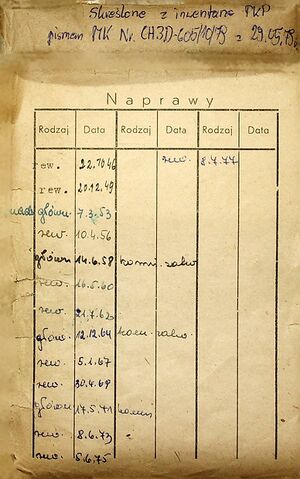 Skreślone z inwentarza PKP
pismem MK Nr. CH3D-605/10/79 z 29.05.79r.
Naprawy
Rodzaj Data Rodzaj Data Rodzaj Data
rew. 22.10.46 rew. 8.7.77
rew. 20.12.49
nadz główn. 7.3.53
rew. 10.4.56
główn 14.6.58
rew. 16.5.60
rew. 21.7.62
główn. 12.12.64
rew. 5.1.67
rew. 30.4.69
główn 17.5.71
rew. 8.6.73
rew. 5.6.75